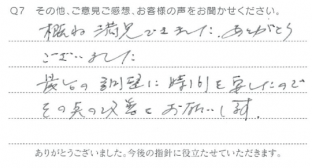 Q7 その他、ご意見ご感想、お客様の声をお聞かせください。
概ね満足できました。ありがとう
ございました
最后の調整に時間を要したので
その点の改善をお願いします。
ありがとうございました。今後の指針に役立たせていただきます。